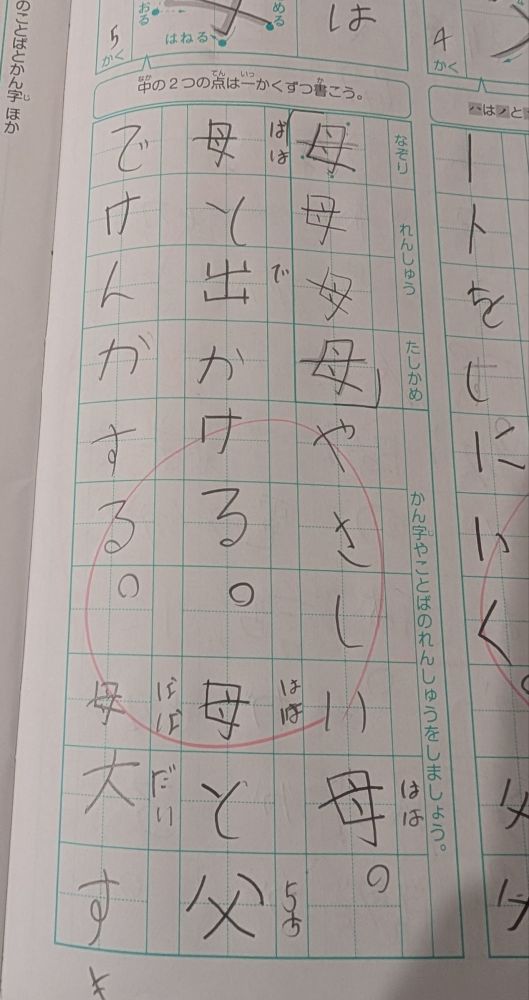 4
かく
ハはノと
ートをしにいく。
は
める
おる
はねる
5
かく
中の2つの点は一かくずつ書こう。
なか
てん
いっ
か
なぞり
れんしゅう
たしかめ
かん字やことばのれんしゅうをしましょう。
じ
母母母母やさしい母。
はは
母と出かける。母と父
はは
で
はは
ちち
でけんがする。母大す
だい
き
のことばとかん字 ほか
じ